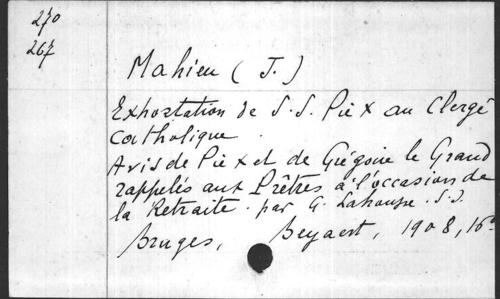 270
267
Mahieu (J.)
Exhortation de S.S. Pie X au Clergé
catholique.
Avis de Pie X et de Grégoire le Grand
rappelés aux Prêtres à l'occasion de
la Retraite. par G. Lahousse. S.J.
Bruges, Beyaert, 1908, 16°